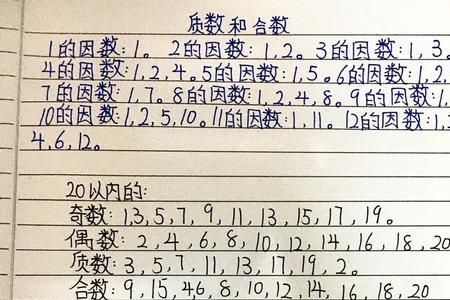 质数和合数
1的因数:1。 2的因数:1,2。3的因数:1,3。
4的因数:1,2,4。5的因数:1,5。6的因数:1,2,
7的因数:1,7。8的因数:1,2,4,8。9的因数:1,
10的因数:1,2,5,10。11的因数:1,11。12的因数:1,2
4,6,12。
20以内的:
奇数:1,3,5,7,9,11,13,15,17,19。
偶数:2,4,6,8,10,12,14,16,18,20
质数:3,5,7,11,13,17,19,2。
合数:9,15,4,6,8,10,12,14,16,18,20